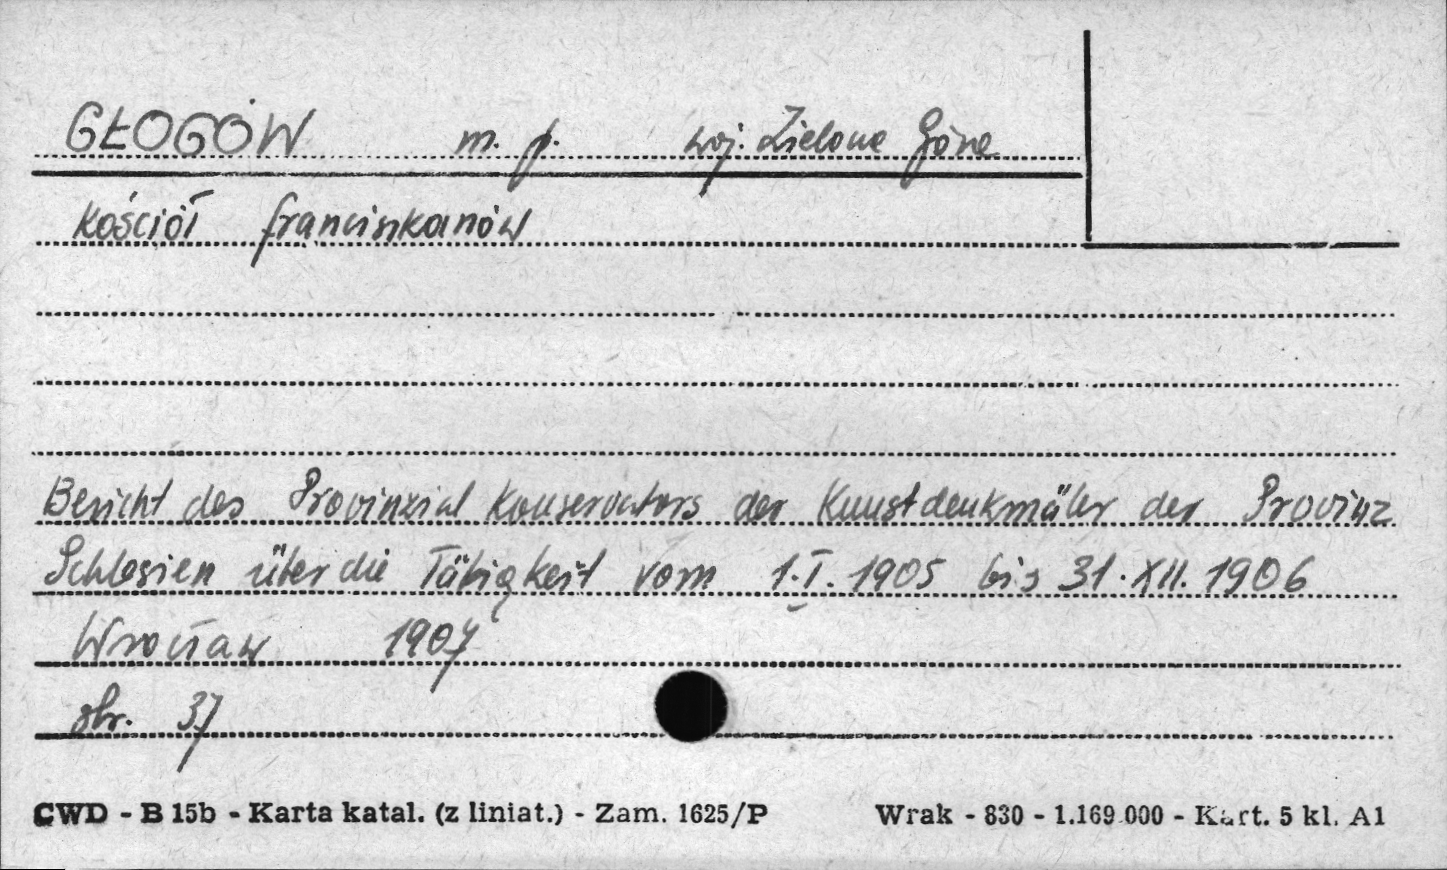 GŁOGÓW m. p. woj. Zielona Góra
Kościół franciszkanów
Bericht des Provinzial Konservators der Kunstdenkmäler der Provinz
Schlesien über die Tätigkeit vom 1.I.1905 bis 31.XII.1906
Wrocław 1907
str. 37
CWD - B 15b - Karta katal. (z liniat.) - Zam. 1625/P Wrak - 830 - 1.169.000 - Kart. 5 kl. A1